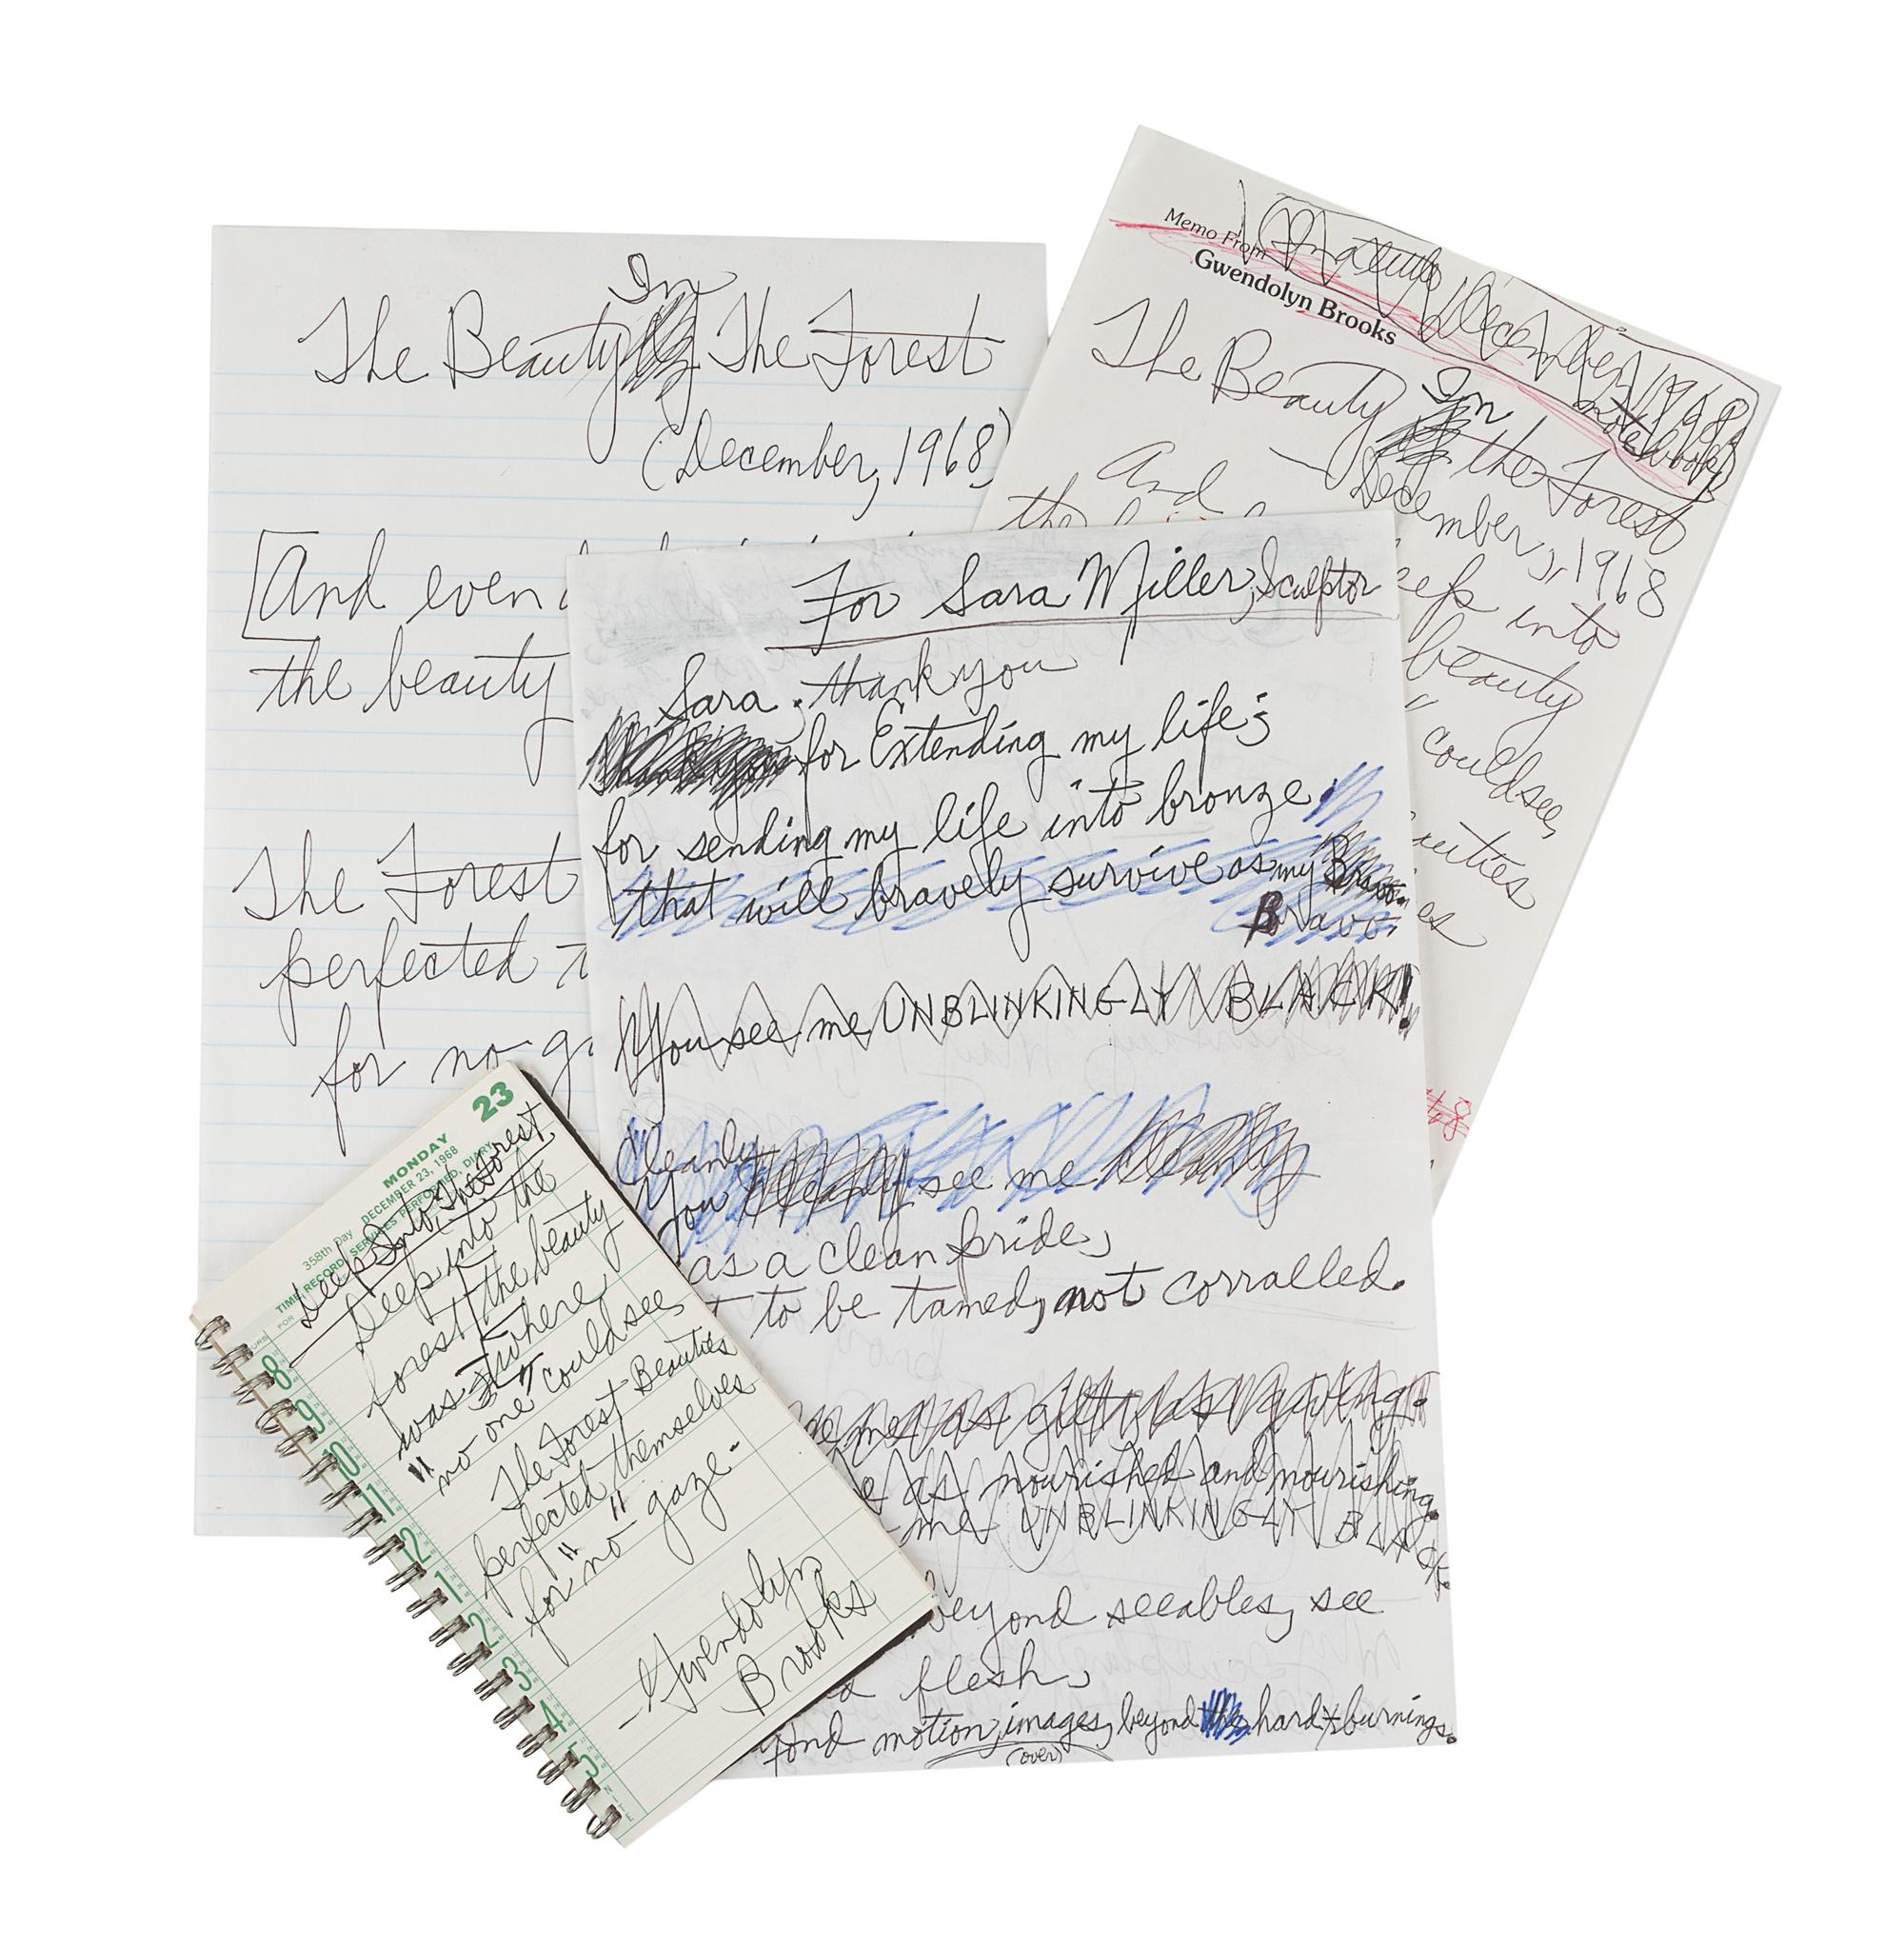 The Beauty In The Forest
(December, 1968)
And even
the beauty
The Forest
perfected
for no
Memo From
Gwendolyn Brooks
December 1968
notebook
The Beauty In the Forest
December, 1968
And
the
deep into
beauty
" could see,
For Sara Miller, Sculptor
Sara, thank you
thank you for Extending my life;
for sending my life into bronze.
that will bravely survive as my Bravo.
Bravo.
You see me UNBLINKINGLY BLACK!
Cleanly
You see me cleanly
as a clean pride,
to be tamed, not corralled.
me as
as nourished and nourishing.
me UNBLINKINGLY BLACK.
beyond seeables, see
flesh,
motion, images, beyond the hard burnings.
(over)
23
MONDAY
DECEMBER 23, 1968
358th Day
TIME RECORD, SERVICES PERFORMED, DIARY
Deep Into The Forest
Deep into the
forest the beauty
was where
"no one" could see.
The Forest Beauties
perfected themselves
for "no" gaze-
-Gwendolyn
Brooks
8
9
10
11
12
1
2
3
4
5